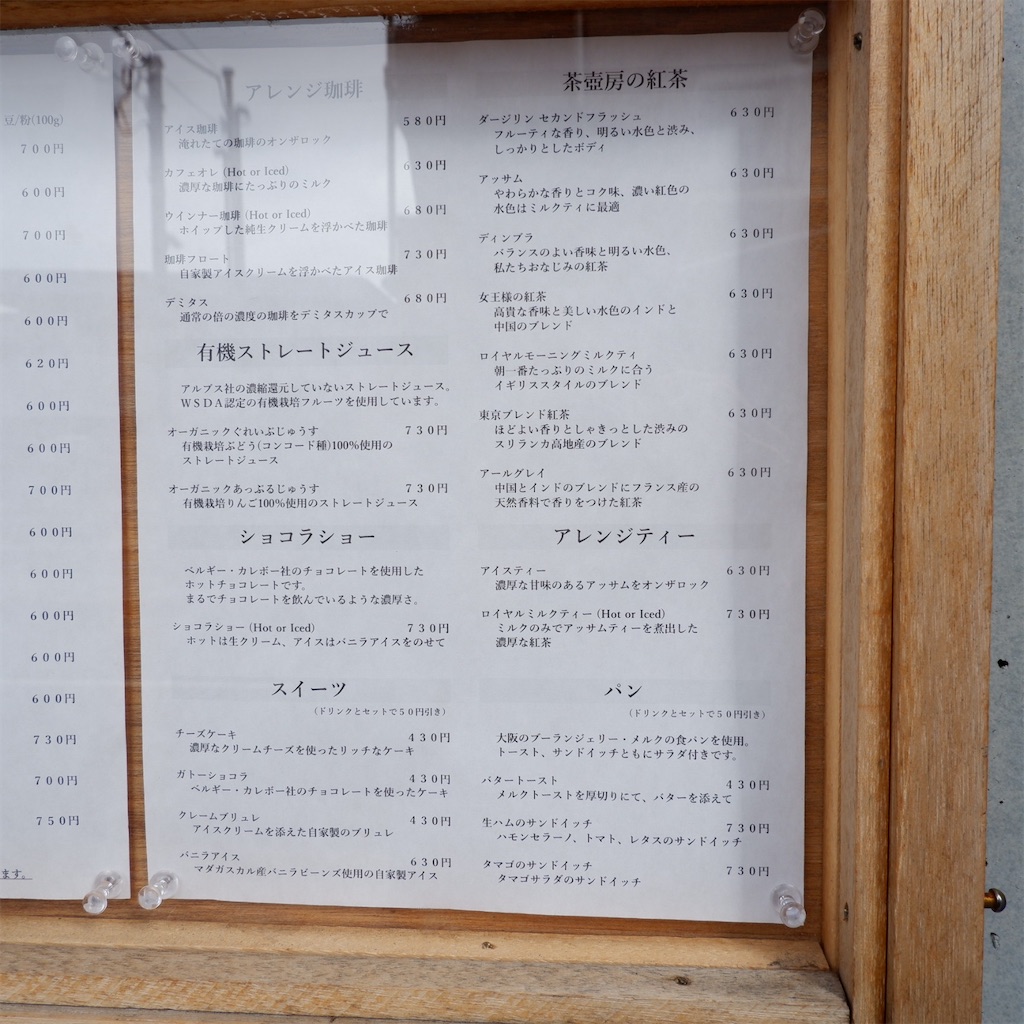 豆/粉(100g)
700円
600円
700円
600円
600円
620円
600円
600円
700円
600円
600円
600円
600円
600円
730円
700円
750円
ます。
アレンジ珈琲
アイス珈琲 580円
淹れたての珈琲のオンザロック
カフェオレ (Hot or Iced) 630円
濃厚な珈琲にたっぷりのミルク
ウインナー珈琲 (Hot or Iced) 680円
ホイップした純生クリームを浮かべた珈琲
珈琲フロート 730円
自家製アイスクリームを浮かべたアイス珈琲
デミタス 680円
通常の倍の濃度の珈琲をデミタスカップで
有機ストレートジュース
アルプス社の濃縮還元していないストレートジュース。
WSDA認定の有機栽培フルーツを使用しています。
オーガニックぐれいぷじゅうす 730円
有機栽培ぶどう(コンコード種)100%使用の
ストレートジュース
オーガニックあっぷるじゅうす 730円
有機栽培りんご100%使用のストレートジュース
ショコラショー
ベルギー・カレボー社のチョコレートを使用した
ホットチョコレートです。
まるでチョコレートを飲んでいるような濃厚さ。
ショコラショー (Hot or Iced) 730円
ホットは生クリーム、アイスはバニラアイスをのせて
スイーツ
(ドリンクとセットで50円引き)
チーズケーキ 430円
濃厚なクリームチーズを使ったリッチなケーキ
ガトーショコラ 430円
ベルギー・カレボー社のチョコレートを使ったケーキ
クレームブリュレ 430円
アイスクリームを添えた自家製のブリュレ
バニラアイス 630円
マダガスカル産バニラビーンズ使用の自家製アイス
茶壺房の紅茶
ダージリン セカンドフラッシュ 630円
フルーティな香り、明るい水色と渋み、
しっかりとしたボディ
アッサム 630円
やわらかな香りとコク味、濃い紅色の
水色はミルクティに最適
ディンブラ 630円
バランスのよい香味と明るい水色、
私たちおなじみの紅茶
女王様の紅茶 630円
高貴な香味と美しい水色のインドと
中国のブレンド
ロイヤルモーニングミルクティ 630円
朝一番たっぷりのミルクに合う
イギリススタイルのブレンド
東京ブレンド紅茶 630円
ほどよい香りとしゃきっとした渋みの
スリランカ高地産のブレンド
アールグレイ 630円
中国とインドのブレンドにフランス産の
天然香料で香りをつけた紅茶
アレンジティー
アイスティー 630円
濃厚な甘味のあるアッサムをオンザロック
ロイヤルミルクティー (Hot or Iced) 730円
ミルクのみでアッサムティーを煮出した
濃厚な紅茶
パン
(ドリンクとセットで50円引き)
大阪のブーランジェリー・メルクの食パンを使用。
トースト、サンドイッチともにサラダ付きです。
バタートースト 430円
メルクトーストを厚切りにて、バターを添えて
生ハムのサンドイッチ 730円
ハモンセラーノ、トマト、レタスのサンドイッチ
タマゴのサンドイッチ 730円
タマゴサラダのサンドイッチ